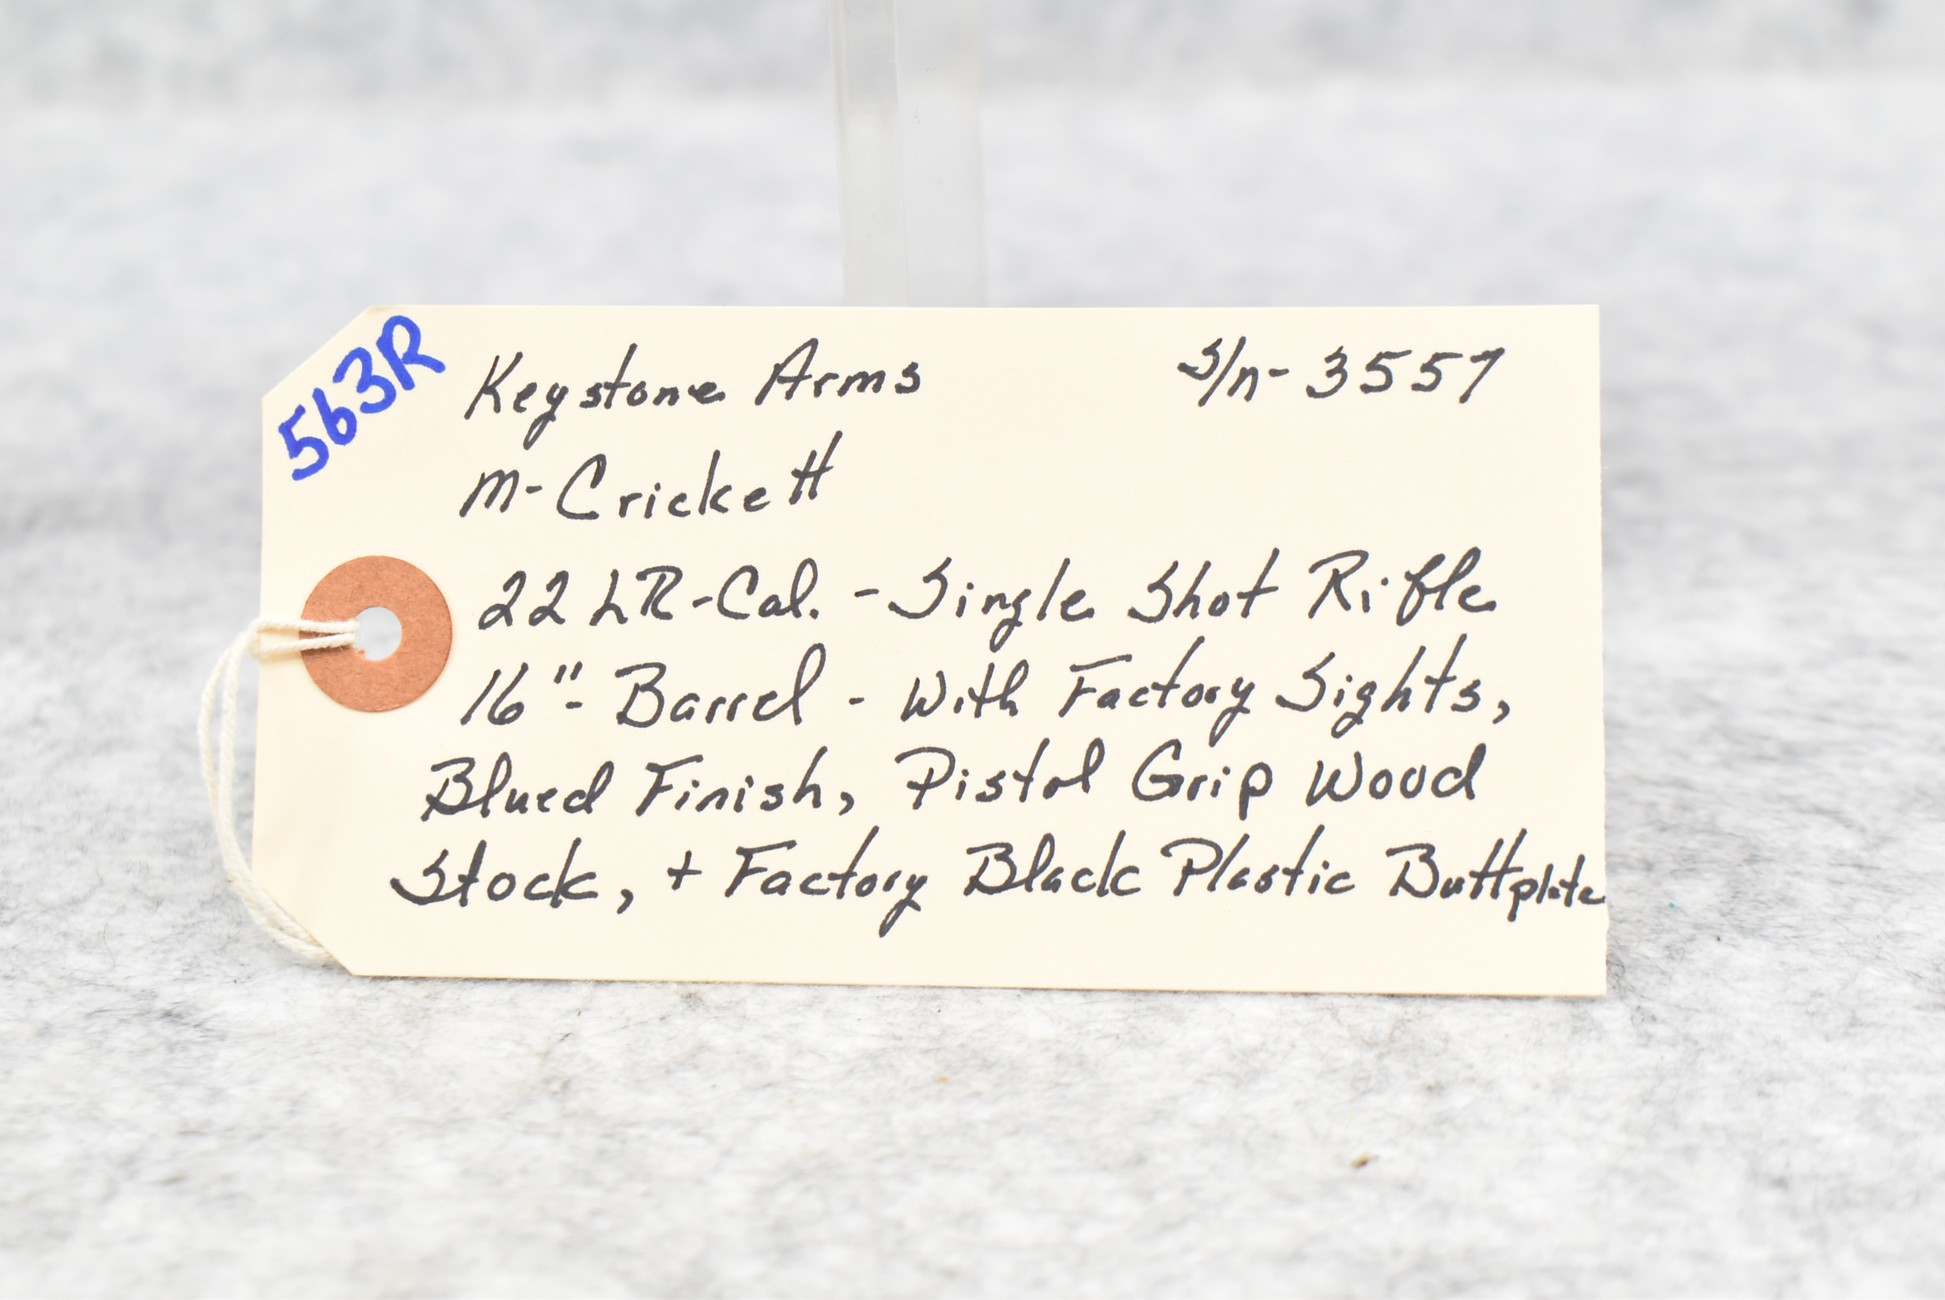 563R
Keystone Arms S/n- 3557
M- Crickett
22 LR-Cal. - Single Shot Rifle
16"- Barrel - With Factory Sights,
Blued Finish, Pistol Grip Wood
Stock, + Factory Black Plastic Buttplate